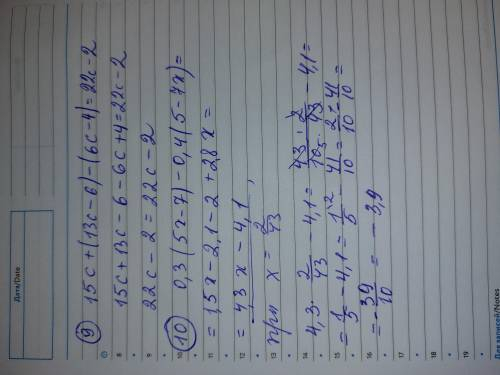 Дата/Date
9 15c+(13c-6)-(6c-4)=22c-2
8 15c+13c-6-6c+4=22c-2
9 22c-2=22c-2
10 10 0,3(5x-7)-0,4(5-7x)=
11 =1,5x-2,1-2+2,8x=
12 =4,3x-4,1,
13 при x=2/43
14 4,3·2/43-4,1=43·2/10·43-4,1=
15 =1/5-4,1=1/5-41/10=2-41/10=
16 =-39/10=-3,9
17
18
19
Для записей/Notes